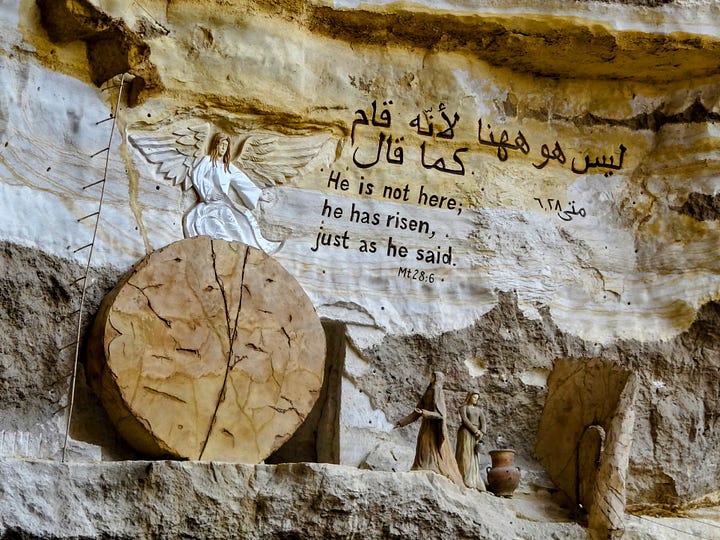 ليس هو ههنا لأنّه قام
كما قال
متى ٦،٢٨
He is not here,
he has risen,
just as he said.
Mt 28:6